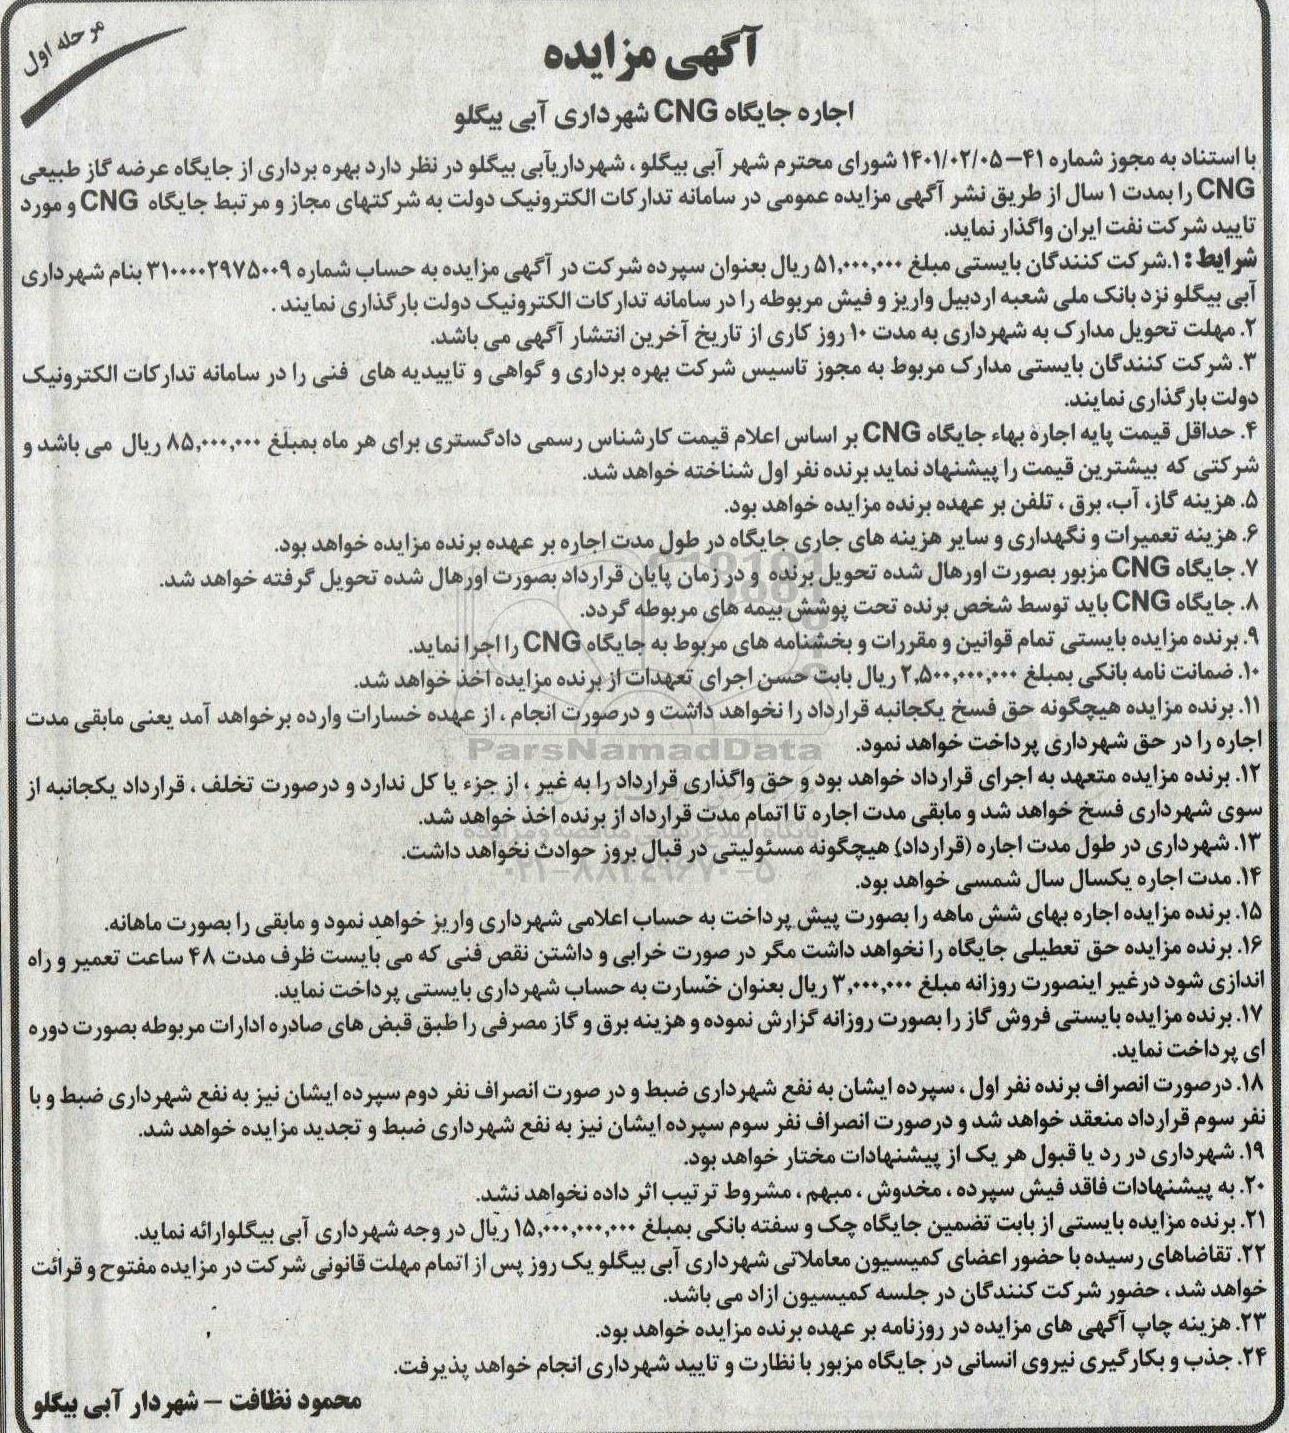 مرحله اول
آگهی مزایده
اجاره جایگاه CNG شهرداری آبی بیگلو
با استناد به مجوز شماره ۴۱–۱۴۰۱/۰۲/۰۵ شورای محترم شهر آبی بیگلو ، شهرداریآبی بیگلو در نظر دارد بهره برداری از جایگاه عرضه گاز طبیعی
CNG را بمدت ۱ سال از طریق نشر آگهی مزایده عمومی در سامانه تدارکات الکترونیک دولت به شرکتهای مجاز و مرتبط جایگاه CNG و مورد
تایید شرکت نفت ایران واگذار نماید.
شرایط : ۱.شرکت کنندگان بایستی مبلغ ۵۱,۰۰۰,۰۰۰ ریال بعنوان سپرده شرکت در آگهی مزایده به حساب شماره ۳۱۰۰۰۰۲۹۷۵۰۰۹ بنام شهرداری
آبی بیگلو نزد بانک ملی شعبه اردبیل واریز و فیش مربوطه را در سامانه تدارکات الکترونیک دولت بارگذاری نمایند .
۲. مهلت تحویل مدارک به شهرداری به مدت ۱۰ روز کاری از تاریخ آخرین انتشار آگهی می باشد.
۳. شرکت کنندگان بایستی مدارک مربوط به مجوز تاسیس شرکت بهره برداری و گواهی و تاییدیه های فنی را در سامانه تدارکات الکترونیک
دولت بارگذاری نمایند.
۴. حداقل قیمت پایه اجاره بهاء جایگاه CNG بر اساس اعلام قیمت کارشناس رسمی دادگستری برای هر ماه بمبلغ ۸۵,۰۰۰,۰۰۰ ریال می باشد و
شرکتی که بیشترین قیمت را پیشنهاد نماید برنده نفر اول شناخته خواهد شد.
۵. هزینه گاز، آب، برق ، تلفن بر عهده برنده مزایده خواهد بود.
۶. هزینه تعمیرات و نگهداری و سایر هزینه های جاری جایگاه در طول مدت اجاره بر عهده برنده مزایده خواهد بود.
۷. جایگاه CNG مزبور بصورت اورهال شده تحویل برنده و در زمان پایان قرارداد بصورت اورهال شده تحویل گرفته خواهد شد.
۸. جایگاه CNG باید توسط شخص برنده تحت پوشش بیمه های مربوطه گردد.
۹. برنده مزایده بایستی تمام قوانین و مقررات و بخشنامه های مربوط به جایگاه CNG را اجرا نماید.
۱۰. ضمانت نامه بانکی بمبلغ ۲,۵۰۰,۰۰۰,۰۰۰ ریال بابت حسن اجرای تعهدات از برنده مزایده اخذ خواهد شد.
۱۱. برنده مزایده هیچگونه حق فسخ یکجانبه قرارداد را نخواهد داشت و درصورت انجام ، از عهده خسارات وارده برخواهد آمد یعنی مابقی مدت
اجاره را در حق شهرداری پرداخت خواهد نمود.
ParsNamadData
۱۲. برنده مزایده متعهد به اجرای قرارداد خواهد بود و حق واگذاری قرارداد را به غیر ، از جزء یا کل ندارد و درصورت تخلف ، قرارداد یکجانبه از
سوی شهرداری فسخ خواهد شد و مابقی مدت اجاره تا اتمام مدت قرارداد از برنده اخذ خواهد شد.
پایگاه اطلاع رسانی مناقصه و مزایده
۱۳. شهرداری در طول مدت اجاره (قرارداد) هیچگونه مسئولیتی در قبال بروز حوادث نخواهد داشت.
۰۲۱–۸۸۳۴۹۶۷۰–۵
۱۴. مدت اجاره یکسال سال شمسی خواهد بود.
۱۵. برنده مزایده اجاره بهای شش ماهه را بصورت پیش پرداخت به حساب اعلامی شهرداری واریز خواهد نمود و مابقی را بصورت ماهانه.
۱۶. برنده مزایده حق تعطیلی جایگاه را نخواهد داشت مگر در صورت خرابی و داشتن نقص فنی که می بایست ظرف مدت ۴۸ ساعت تعمیر و راه
اندازی شود درغیر اینصورت روزانه مبلغ ۳,۰۰۰,۰۰۰ ریال بعنوان خسارت به حساب شهرداری بایستی پرداخت نماید.
۱۷. برنده مزایده بایستی فروش گاز را بصورت روزانه گزارش نموده و هزینه برق و گاز مصرفی را طبق قبض های صادره ادارات مربوطه بصورت دوره
ای پرداخت نماید.
۱۸. درصورت انصراف برنده نفر اول ، سپرده ایشان به نفع شهرداری ضبط و در صورت انصراف نفر دوم سپرده ایشان نیز به نفع شهرداری ضبط و با
نفر سوم قرارداد منعقد خواهد شد و درصورت انصراف نفر سوم سپرده ایشان نیز به نفع شهرداری ضبط و تجدید مزایده خواهد شد.
۱۹. شهرداری در رد یا قبول هر یک از پیشنهادات مختار خواهد بود.
۲۰. به پیشنهادات فاقد فیش سپرده ، مخدوش ، مبهم ، مشروط ترتیب اثر داده نخواهد نشد.
۲۱. برنده مزایده بایستی از بابت تضمین جایگاه چک و سفته بانکی بمبلغ ۱۵,۰۰۰,۰۰۰,۰۰۰ ریال در وجه شهرداری آبی بیگلوارائه نماید.
۲۲. تقاضاهای رسیده با حضور اعضای کمیسیون معاملاتی شهرداری آبی بیگلو یک روز پس از اتمام مهلت قانونی شرکت در مزایده مفتوح و قرائت
خواهد شد ، حضور شرکت کنندگان در جلسه کمیسیون ازاد می باشد.
۲۳. هزینه چاپ آگهی های مزایده در روزنامه بر عهده برنده مزایده خواهد بود.
۲۴. جذب و بکارگیری نیروی انسانی در جایگاه مزبور با نظارت و تایید شهرداری انجام خواهد پذیرفت.
محمود نظافت – شهردار آبی بیگلو